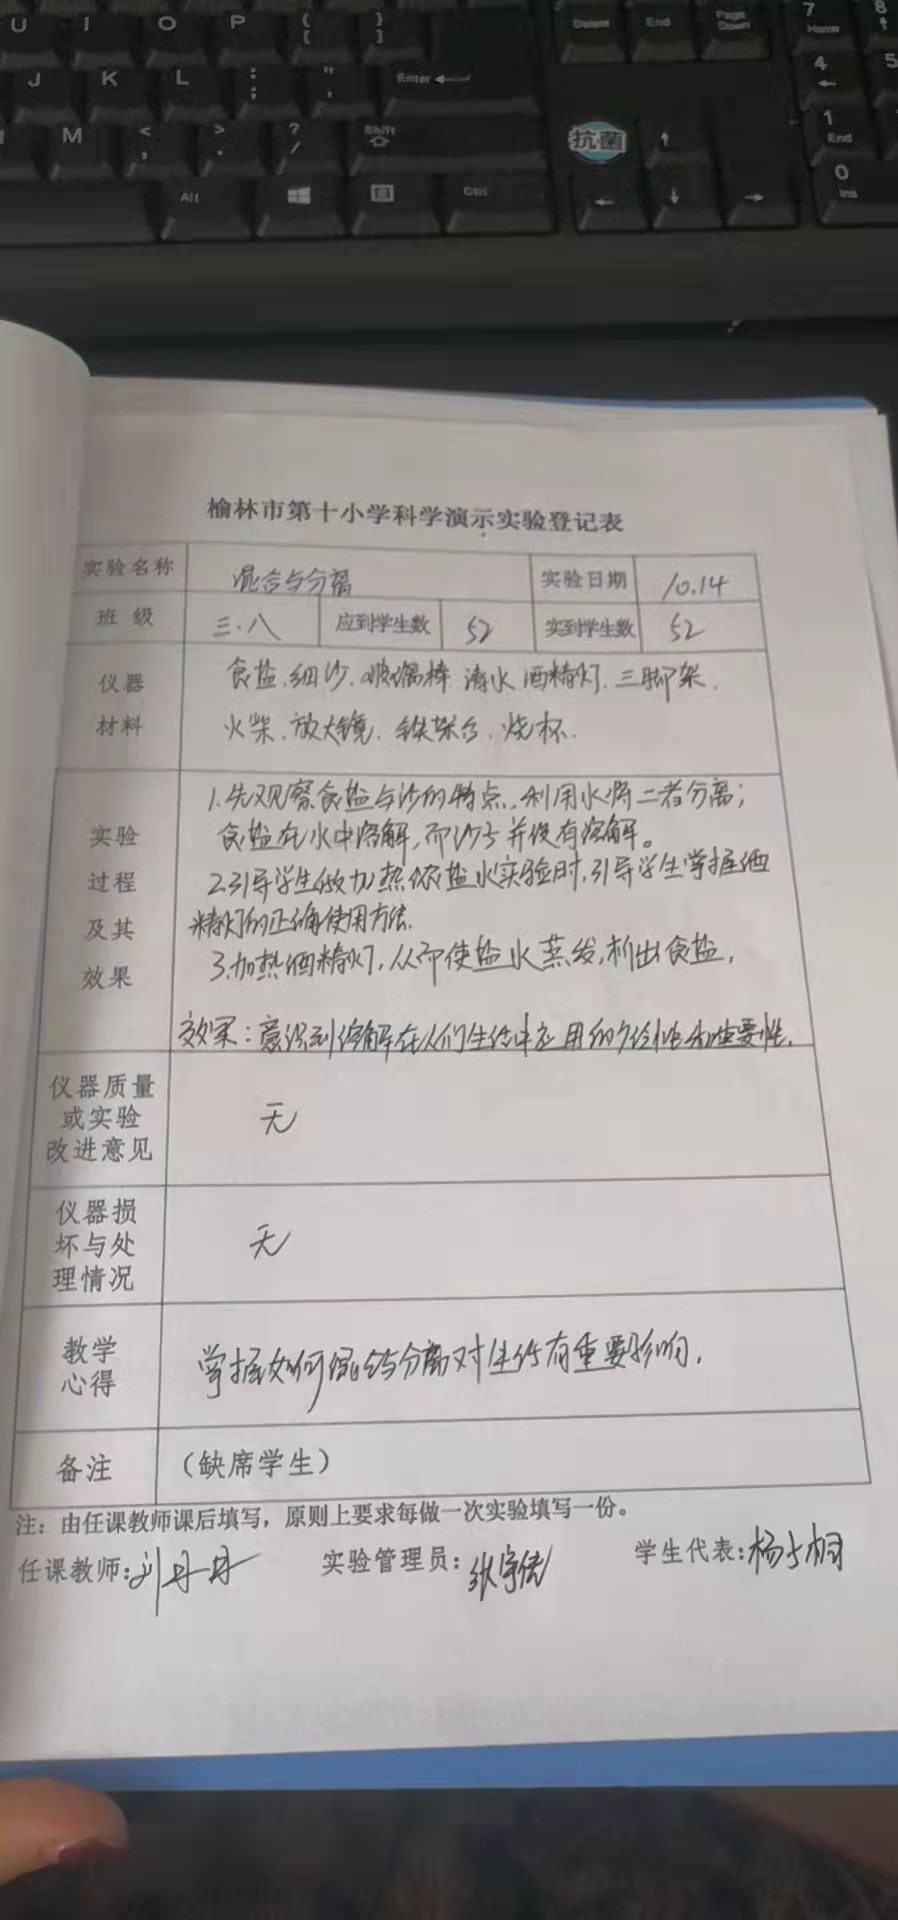 U I O P { [ } ] Delete End Page Down 7 Home 8
J K L : ; " ' Enter 4 5
M < , > . ? / Shift 抗菌 1 End
Alt Ctrl 0 Ins
榆林市第十小学科学演示实验登记表
实验名称 混合与分离 实验日期 10.14
班 级 三.八 应到学生数 52 实到学生数 52
仪器 食盐.细沙.玻璃棒 清水 酒精灯.三脚架.
材料 火柴.放大镜.铁架台.烧杯.
1.先观察食盐与沙的特点,利用水将二者分离;
实验 食盐在水中溶解,而沙子并没有溶解。
过程 2.引导学生做加热浓盐水实验时,引导学生掌握酒
及其 精灯的正确使用方法.
效果 3.加热酒精灯,从而使盐水蒸发,析出食盐,
效果:意识到溶解在人们生活中应用的 和重要性.
仪器质量
或实验 无
改进意见
仪器损
坏与处 无
理情况
教学
心得 掌握如何混合与分离对生活有重要影响.
备注 (缺席学生)
注:由任课教师课后填写,原则上要求每做一次实验填写一份。
任课教师:刘丹丹 实验管理员: 学生代表:杨